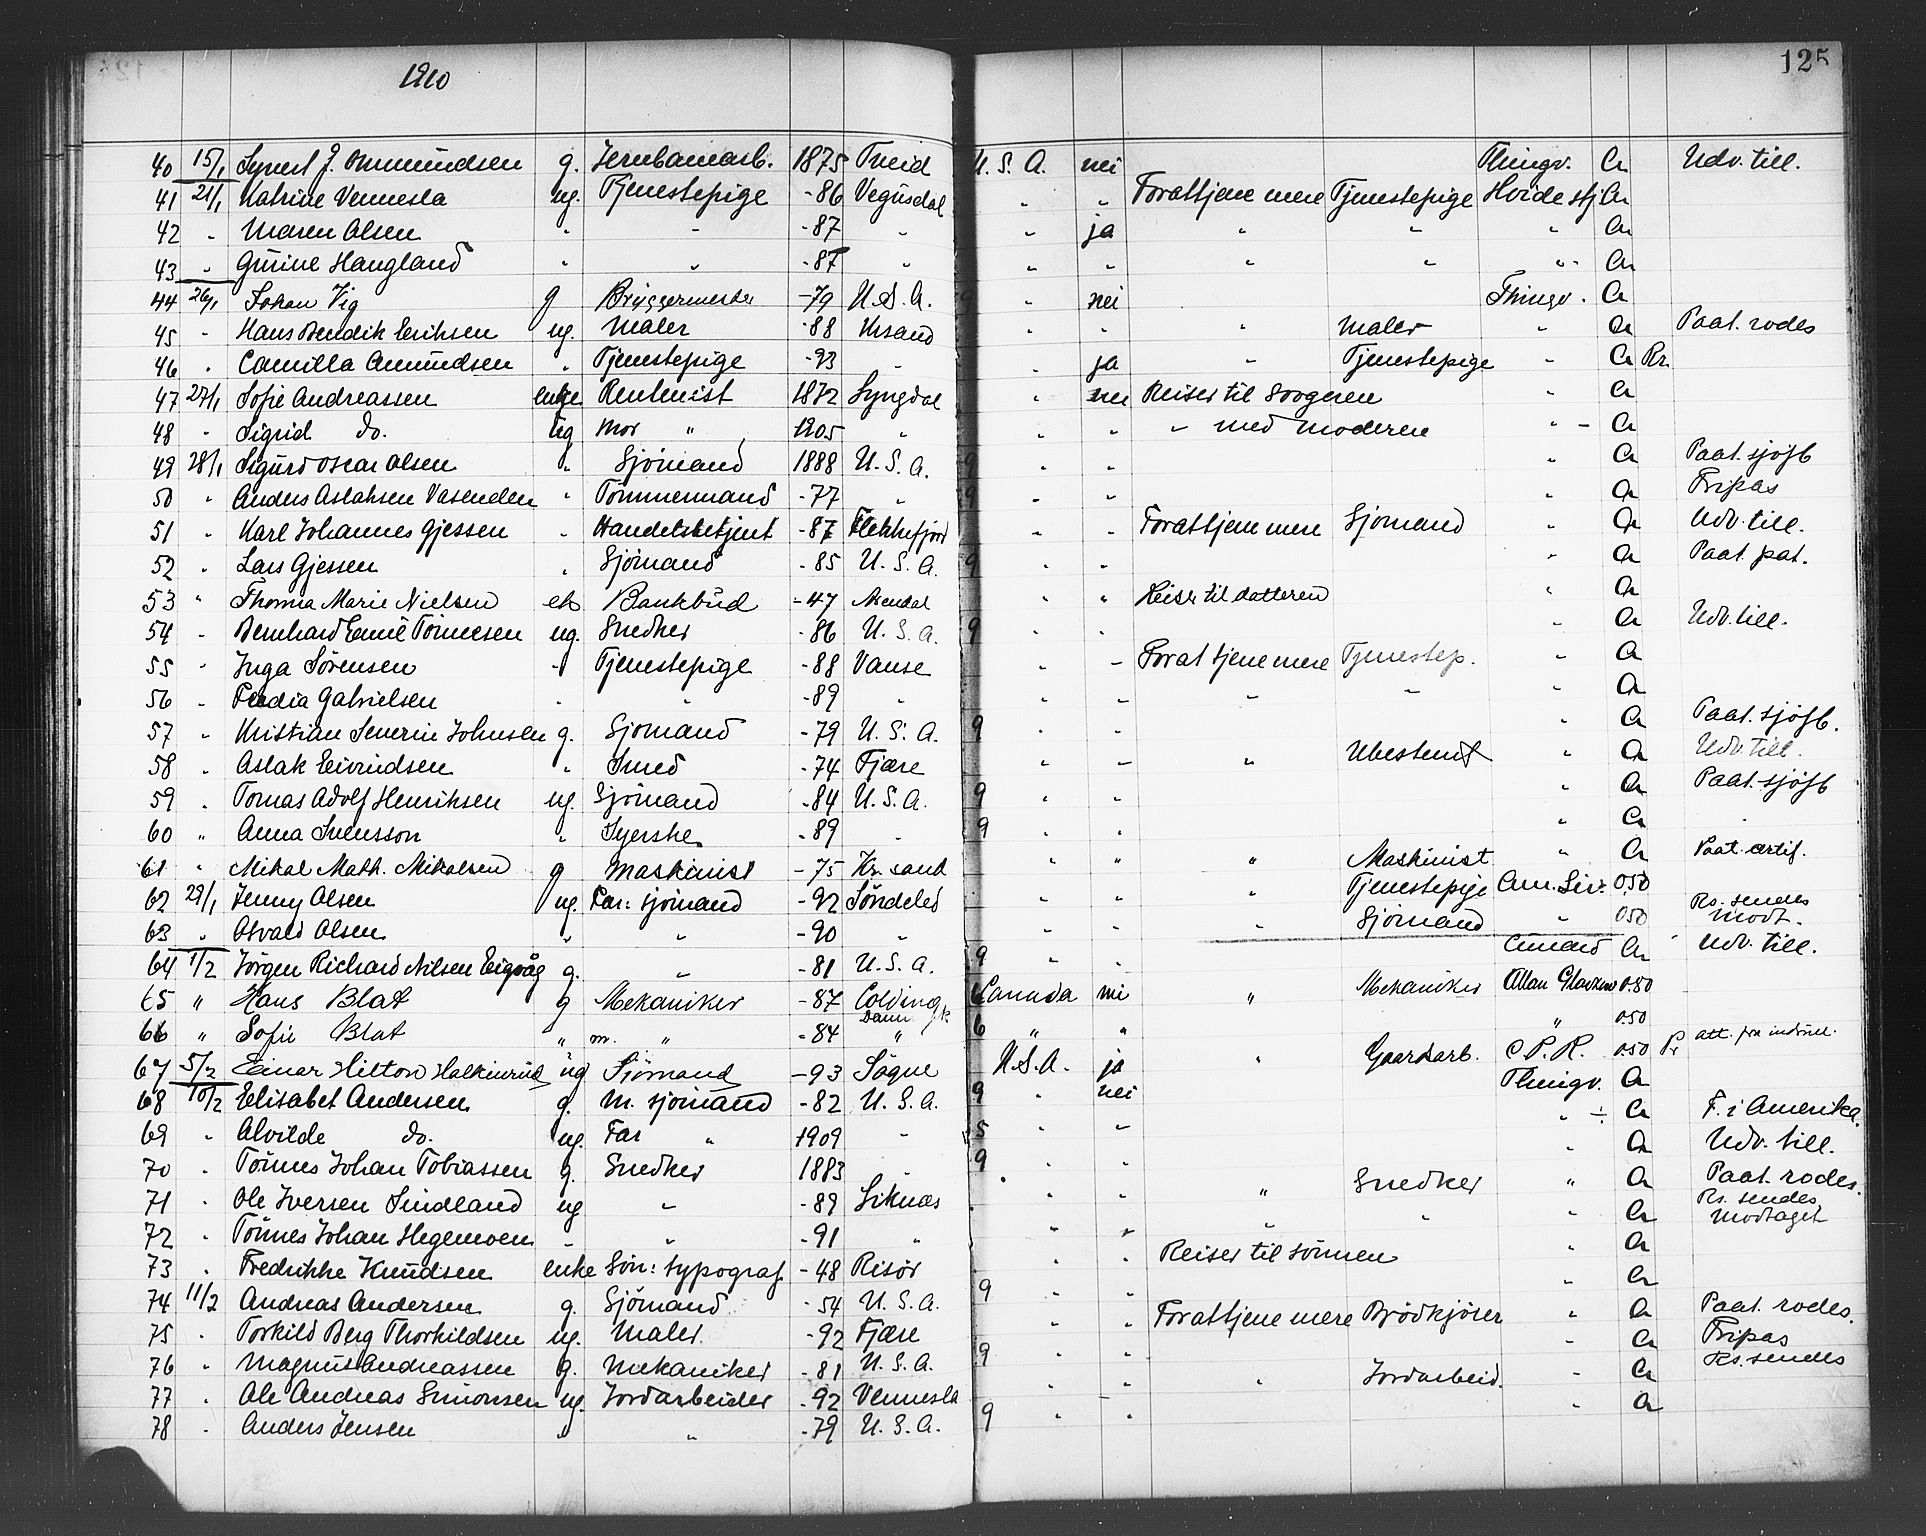 1910
125
40 15/1 Synert J. Ommundsen g. Jernbanearb. 1875 Tveid U. S. A. nei Thingv. Cr Udv. till.
41 21/1 Katrine Vennesla ug. Tjenestepige -86 Vegusdal " " Forattjene mere Tjenestepige Hvide stj Cr
42 " Maren Olsen " " -87 " " ja " " " Cr
43 " Gurine Haugland " " -87 " " " " " " Cr
44 26/1 Johan Vig g Bryggermester -79 U.S.A. 9 " nei Thingv. Cr
45 " Hans Bendik Eriksen ug. Maler -88 Krsand " " " Maler " Cr Paat. rodes
46 " Camilla Amundsen " Tjenestepige -93 " " ja " Tjenestepige " Cr Rr.
47 27/1 Sofie Andreassen enke Rentenist 1872 Lyngdal " nei Reiser til Svogeren " Cr
48 " Sigrid do. ug Mor " 1905 " " " " med moderen " Cr
49 28/1 Sigurd Oscar Olsen " Sjömand 1888 U. S. A. 9 " " " Cr Paat. sjöfb
50 " Anders Aslaksen Vasenden " Tömmermand -77 " 9 " " " Cr Fripas
51 " Karl Johannes Gjessen " Handelsbetjent -87 Flekkefjord " " Forattjene mere Sjömand " Cr Udv. till.
52 " Lars Gjessen " Sjömand -85 U. S. A. 9 " " " Cr Paat. pat.
53 " Thomia Marie Nielsen ek Bankbud -47 Arendal " " Reiser til datteren " Cr
54 " Bernhard Emil Tönnesen ug. Snedker -86 U. S. A. 9 " " " Cr Udv. till.
55 " Inga Sörensen " Tjenestepige -88 Vanse " " Forat tjene mere Tjenestep. " Cr
56 " Gabrielsen " " -89 " " " " " " Cr
57 " Kristian Severin Johnsen g. Sjömand -79 U. S. A. 9 " " " Cr Paat. sjöfb.
58 " Aslak Eivindsen " Smed -74 Fjære " " " Ubestemt " Cr Udv. till.
59 " Tomas Adolf Henriksen ug. Sjömand -84 U. S. A. 9 " " " Cr Paat. sjöfb
60 " Anna Svensson " Syerske -89 " 9 " " " Cr "
61 " Mikal Math. Mikalsen g Maskinist -75 Kr.sand " " " Maskinist " Cr Paat. certif.
62 29/1 Jenny Olsen ug. Far: sjömand -92 Söndeled " " " Tjenestepige Am. Lin. 0.50
63 " Osvald Olsen " " -90 " " " " Sjömand " 0.50 Rs. sendes modt.
64 1/2 Jörgen Richard Nilsen Eigvåg g. " -81 U. S. A. 9 " " Cunard Cr Udv. till.
65 " Hans Blat g Mekaniker -87 Colding Danm 6 Canada nei " Mekaniker Allan 0.50
66 " Sofie Blat " m. " -84 " 6 " " " 0.50
67 5/2 Einar Hilton ug Sjömand -93 Sögne U.S.A. ja " Gaardarb. C P. R. 0.50 att. fra
68 10/2 Elisabet Andersen g. M. sjömand -82 U. S. A. 9 " nei Thingv. Cr
69 " Alvilde do. ug. Far " 1909 " 5 " " " ÷ Cr F. i Amerika.
70 " Tönnes Johan Tobiassen g. Snedker 1883 " 9 " " " Cr Udv. till.
71 " Ole Iversen Sindland ug " -89 Liknæs " " " Snedker " Cr Paat. rodes.
72 " Tönnes Johan Hegemoen " " -91 " " " " " " Cr Rs. sendes modtaget
73 " Fredrikke Knudsen enke Sön: typograf -48 Risör " " Reiser til sönnen " Cr
74 11/2 Andreas Andersen g. Sjömand -54 U. S. A. 9 " " " Cr
75 " Torkild Berg Thorkildsen ug. Maler. -92 Fjære " " Forattjene mere Brödkjörer " Cr Paat. rodes.
76 " Magnus Andreassen g. Mekaniker -81 U. S. A. 9 " " " Cr Fripas
77 " Ole Andreas Simonsen ug. Jordarbeider -92 Vennesla " " " Jordarbeid. " Cr Rs. sendes
78 " Anders Jensen " " -79 U. S. A. 9 " " " Cr